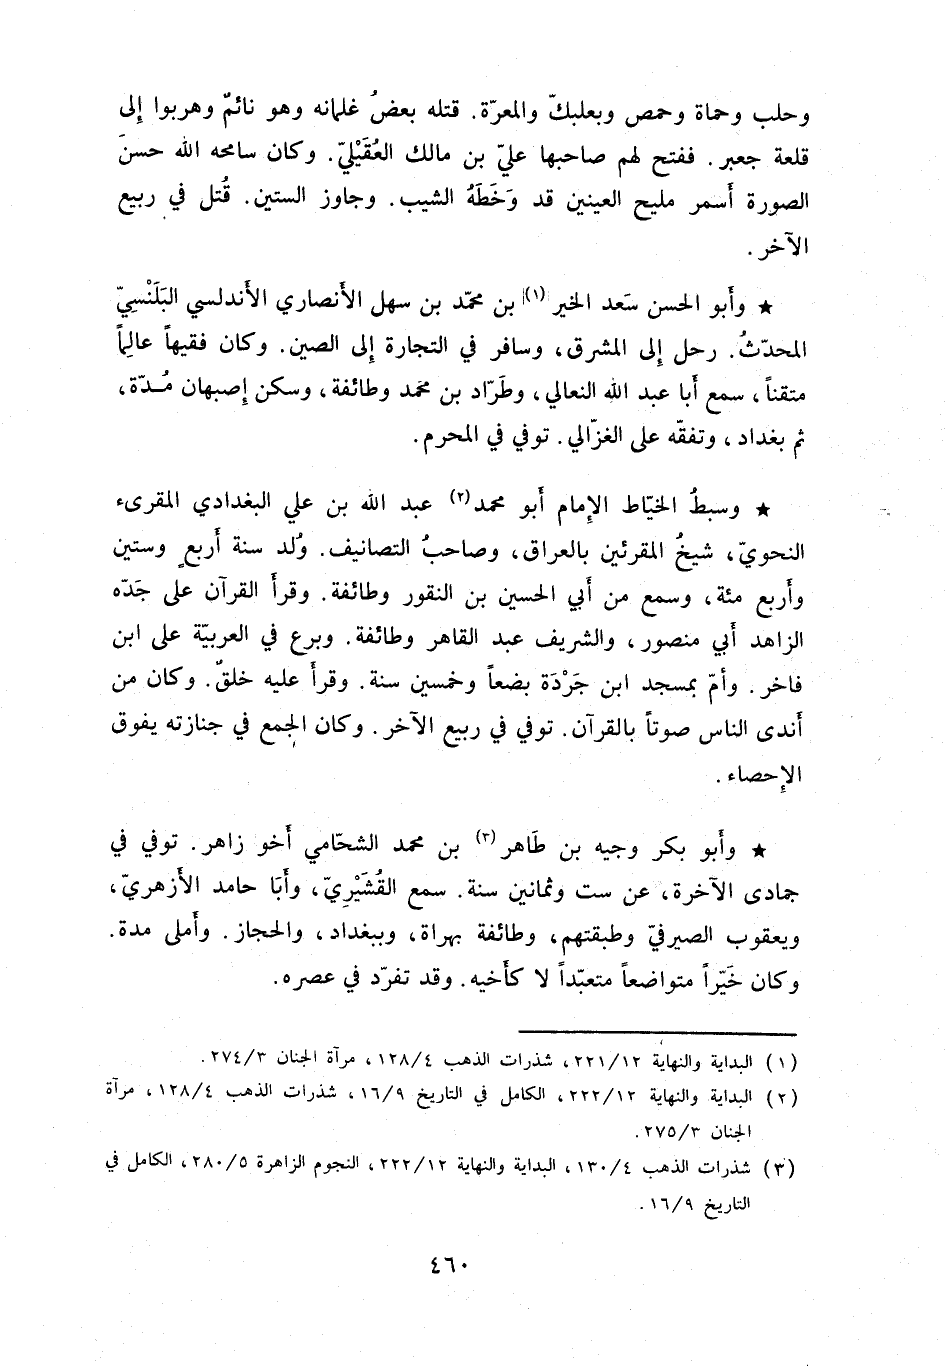 وحلب وحماة وحمص وبعلبكّ والمعرّة. قتله بعضُ غلمانه وهو نائمٌ وهربوا إلى
قلعة جعبر. ففتح لهم صاحبها عليّ بن مالك العُقَيْليّ. وكان سامحه الله حسنَ
الصورة أَسمر مليح العينين قد وَخَطَهُ الشيب. وجاوز الستين. قُتل في ربيع
الآخر.
★ وأَبو الحسن سَعد الخير (١) بن محمّد بن سهل الأَنصاري الأَندلسي البَلَنْسِيّ
المحدّثُ. رحل إلى المشرق، وسافر في التجارة إلى الصين. وكان فقيهاً عالِماً
متقناً، سمع أَبا عبد الله النعالي، وطَرّاد بن محمد وطائفة، وسكن إصبهان مُدّة،
ثم بغداد، وتفقّه على الغزّالي. توفي في المحرم.
★ وسبطُ الخيّاط الإمام أَبو محمد (٢) عبد الله بن علي البغدادي المقرىء
النحويّ، شيخُ المقرئين بالعراق، وصاحبُ التصانيف. وُلد سنة أَربعٍ وستين
وأَربع مئة، وسمع من أَبي الحسين بن النقور وطائفة. وقرأَ القرآن على جَدّه
الزاهد أَبي منصور، والشريف عبد القاهر وطائفة. وبرع في العربيّة على ابن
فاخر. وأَمّ بمسجد ابن جَرْدَة بضعاً وخمسين سنة. وقرأَ عليه خلقٌ. وكان من
أَندى الناس صوتاً بالقرآن. توفي في ربيع الآخر. وكان الجمع في جنازته يفوق
الإحصاء.
★ وأَبو بكر وجيه بن طَاهر (٣) بن محمد الشحّامي أَخو زاهر. توفي في
جمادى الآخرة، عن ست وثمانين سنة. سمع القُشَيْرِيّ، وأَبَا حامد الأَزهريّ،
ويعقوب الصيرفيّ وطبقتهم، وطائفة بهراة، وببغداد، والحجاز. وأَملى مدة.
وكان خَيّراً متواضعاً متعبّداً لا كأَخيه. وقد تفرّد في عصره.
(١) البداية والنهاية ٢٢١/١٢، شذرات الذهب ١٢٨/٤، مرآة الجنان ٢٧٤/٣.
(٢) البداية والنهاية ٢٢٢/١٢، الكامل في التاريخ ١٦/٩، شذرات الذهب ١٢٨/٤، مرآة
الجنان ٢٧٥/٣.
(٣) شذرات الذهب ١٣٠/٤، البداية والنهاية ٢٢٢/١٢، النجوم الزاهرة ٢٨٠/٥، الكامل في
التاريخ ١٦/٩.
٤٦٠